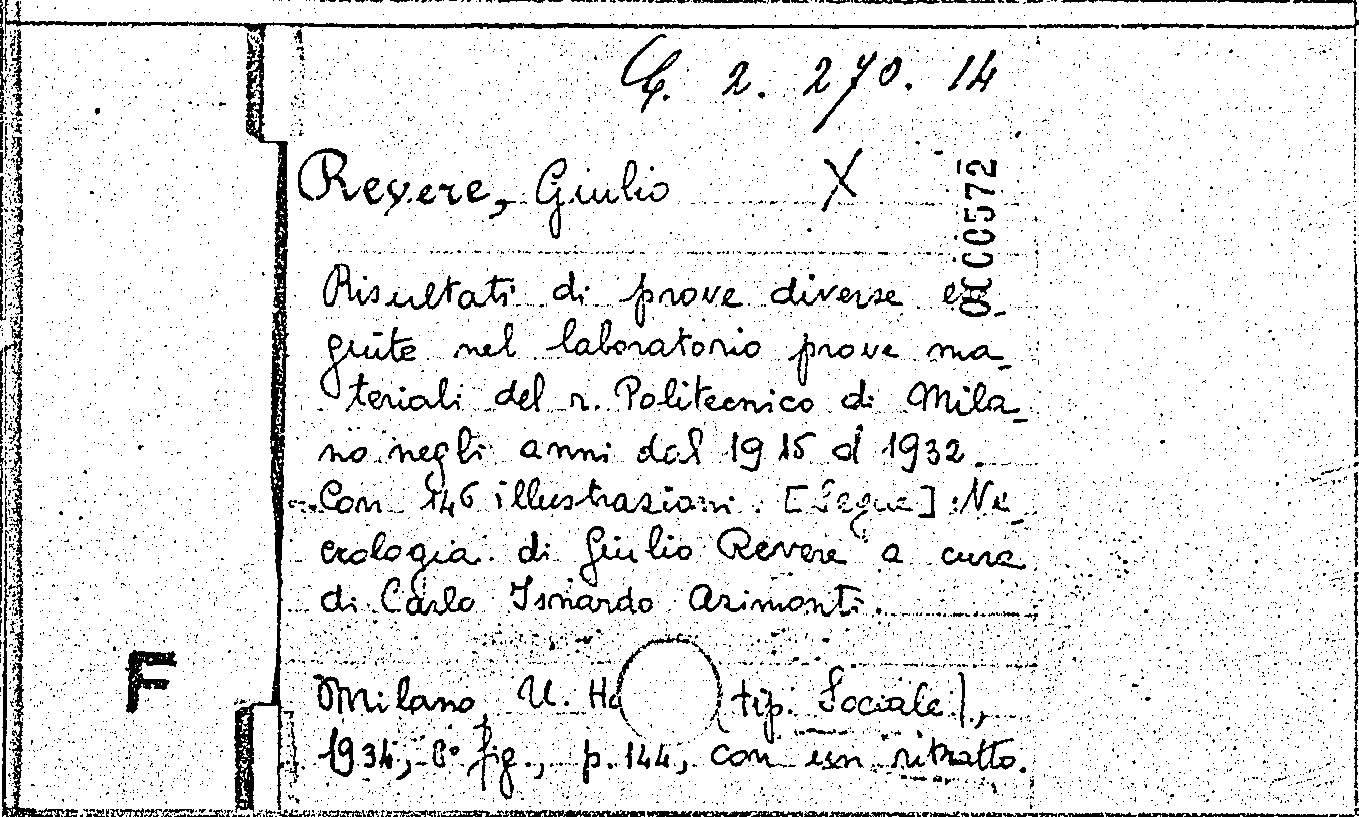 C. 2. 270. 14
Revere, Giulio X
OCCC572
Risultati di prove diverse e
guite nel laboratorio prove ma_
teriali del r. Politecnico di Mila_
no negli anni dal 1915 al 1932.
Con 146 illustrazioni. [Segue] : Ne_
crologia di Giulio Revere a cura
di Carlo Isnardo Azimonti.
F
Milano, U. Ho tip. Sociale],
1934, 8° fig., p. 144, con un ritratto.